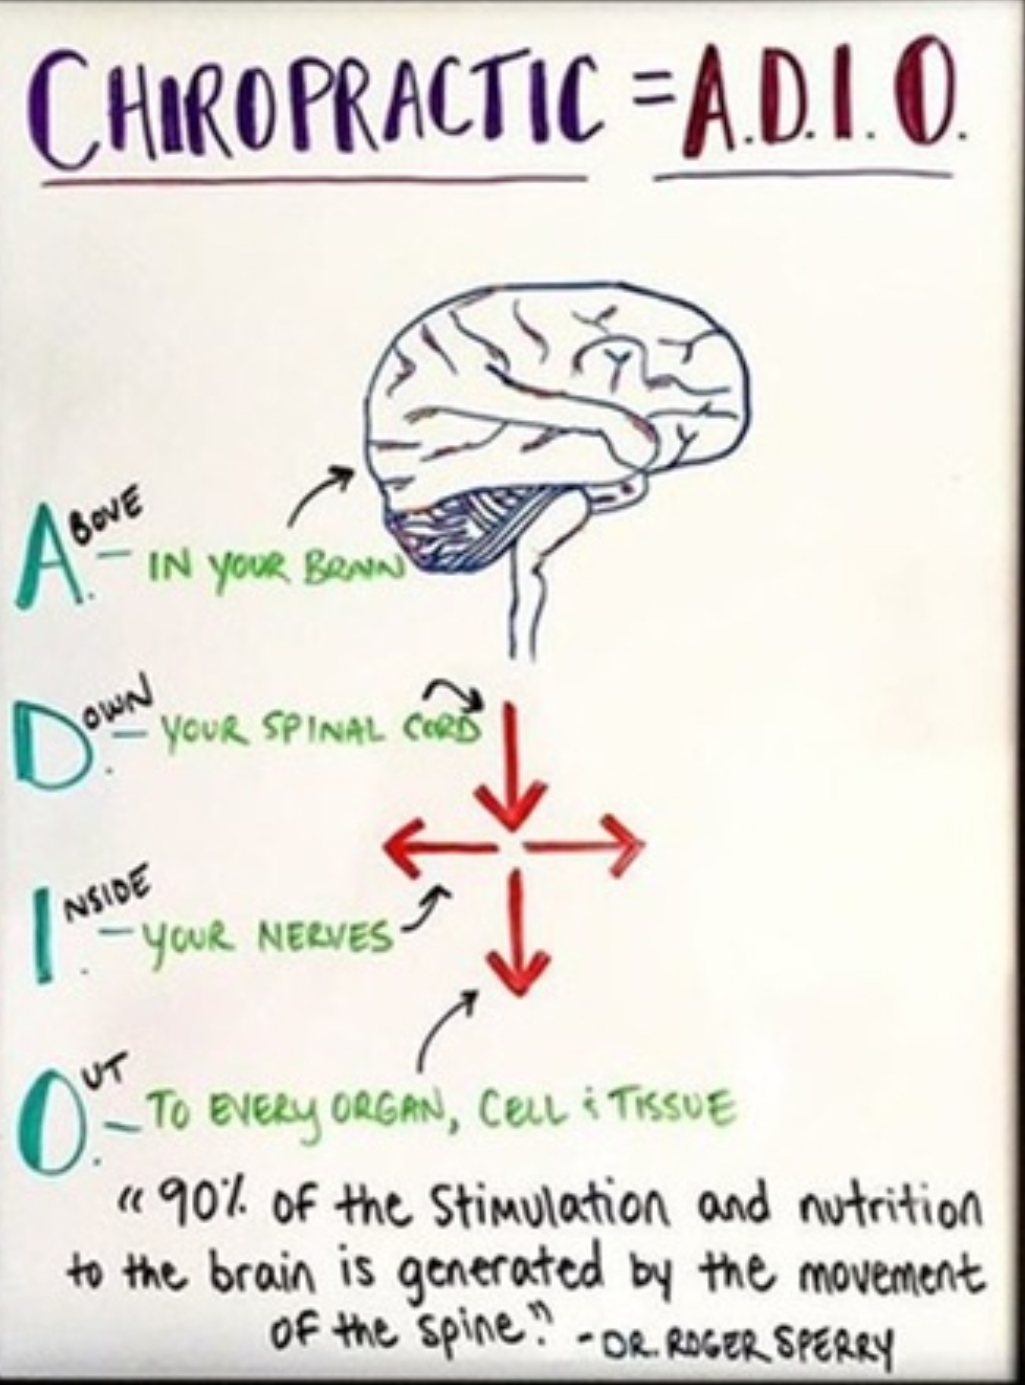 CHIROPRACTIC = A.D.I.O.
ABOVE - IN YOUR BRAIN
DOWN - YOUR SPINAL CORD
INSIDE - YOUR NERVES
OUT - TO EVERY ORGAN, CELL & TISSUE
"90% of the Stimulation and nutrition
to the brain is generated by the movement
of the spine." - DR. ROGER SPERRY